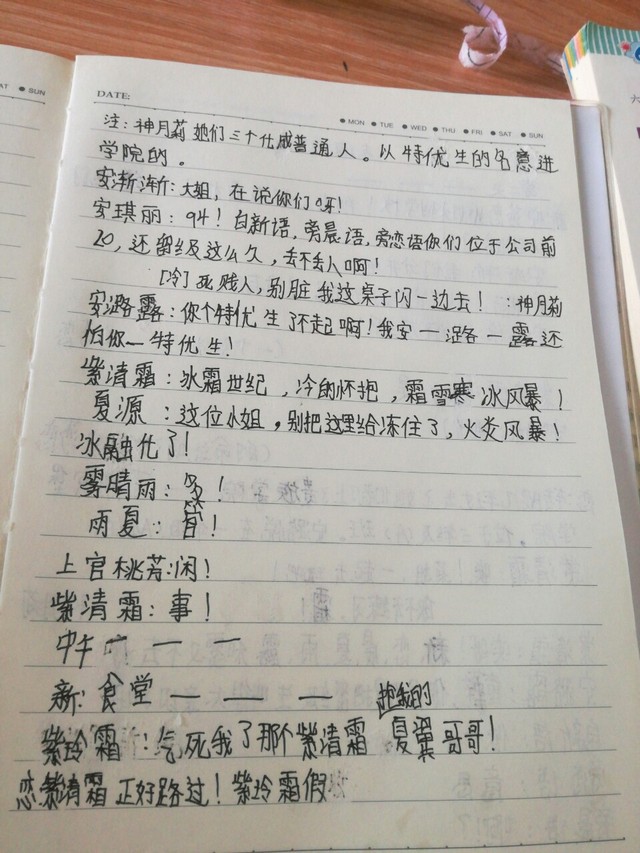 SUN
DATE:
MON TUE WED THU FRI SAT SUN
注：神月莉她们三十化成普通人。以特优生的名意进
学院的。
安渐渐：大姐，在说你们呀！
安琪丽：94！白新语，旁晨语，旁恋语你们位于公司前
20，还留级这么久，丢不丢人啊！
[冷]死贱人，别脏我这桌子闪一边去！：神月莉
安潞露：你个特优生了不起啊！我安一潞一露还
怕你一特优生！
紫清霜：冰霜世纪，冷的怀抱，霜雪寒冰风暴！
夏源：这位小姐，别把这里给冻住了，火炎风暴！
冰融化了！
雾晴雨：多！
雨夏：管！
上官桃芳：闲！
紫清霜：事！
中午一一一
新：食堂一一一
抢我的
紫玲霜：气死我了那个紫清霜 夏翼哥哥！
恋紫清霜正好路过！紫玲霜假